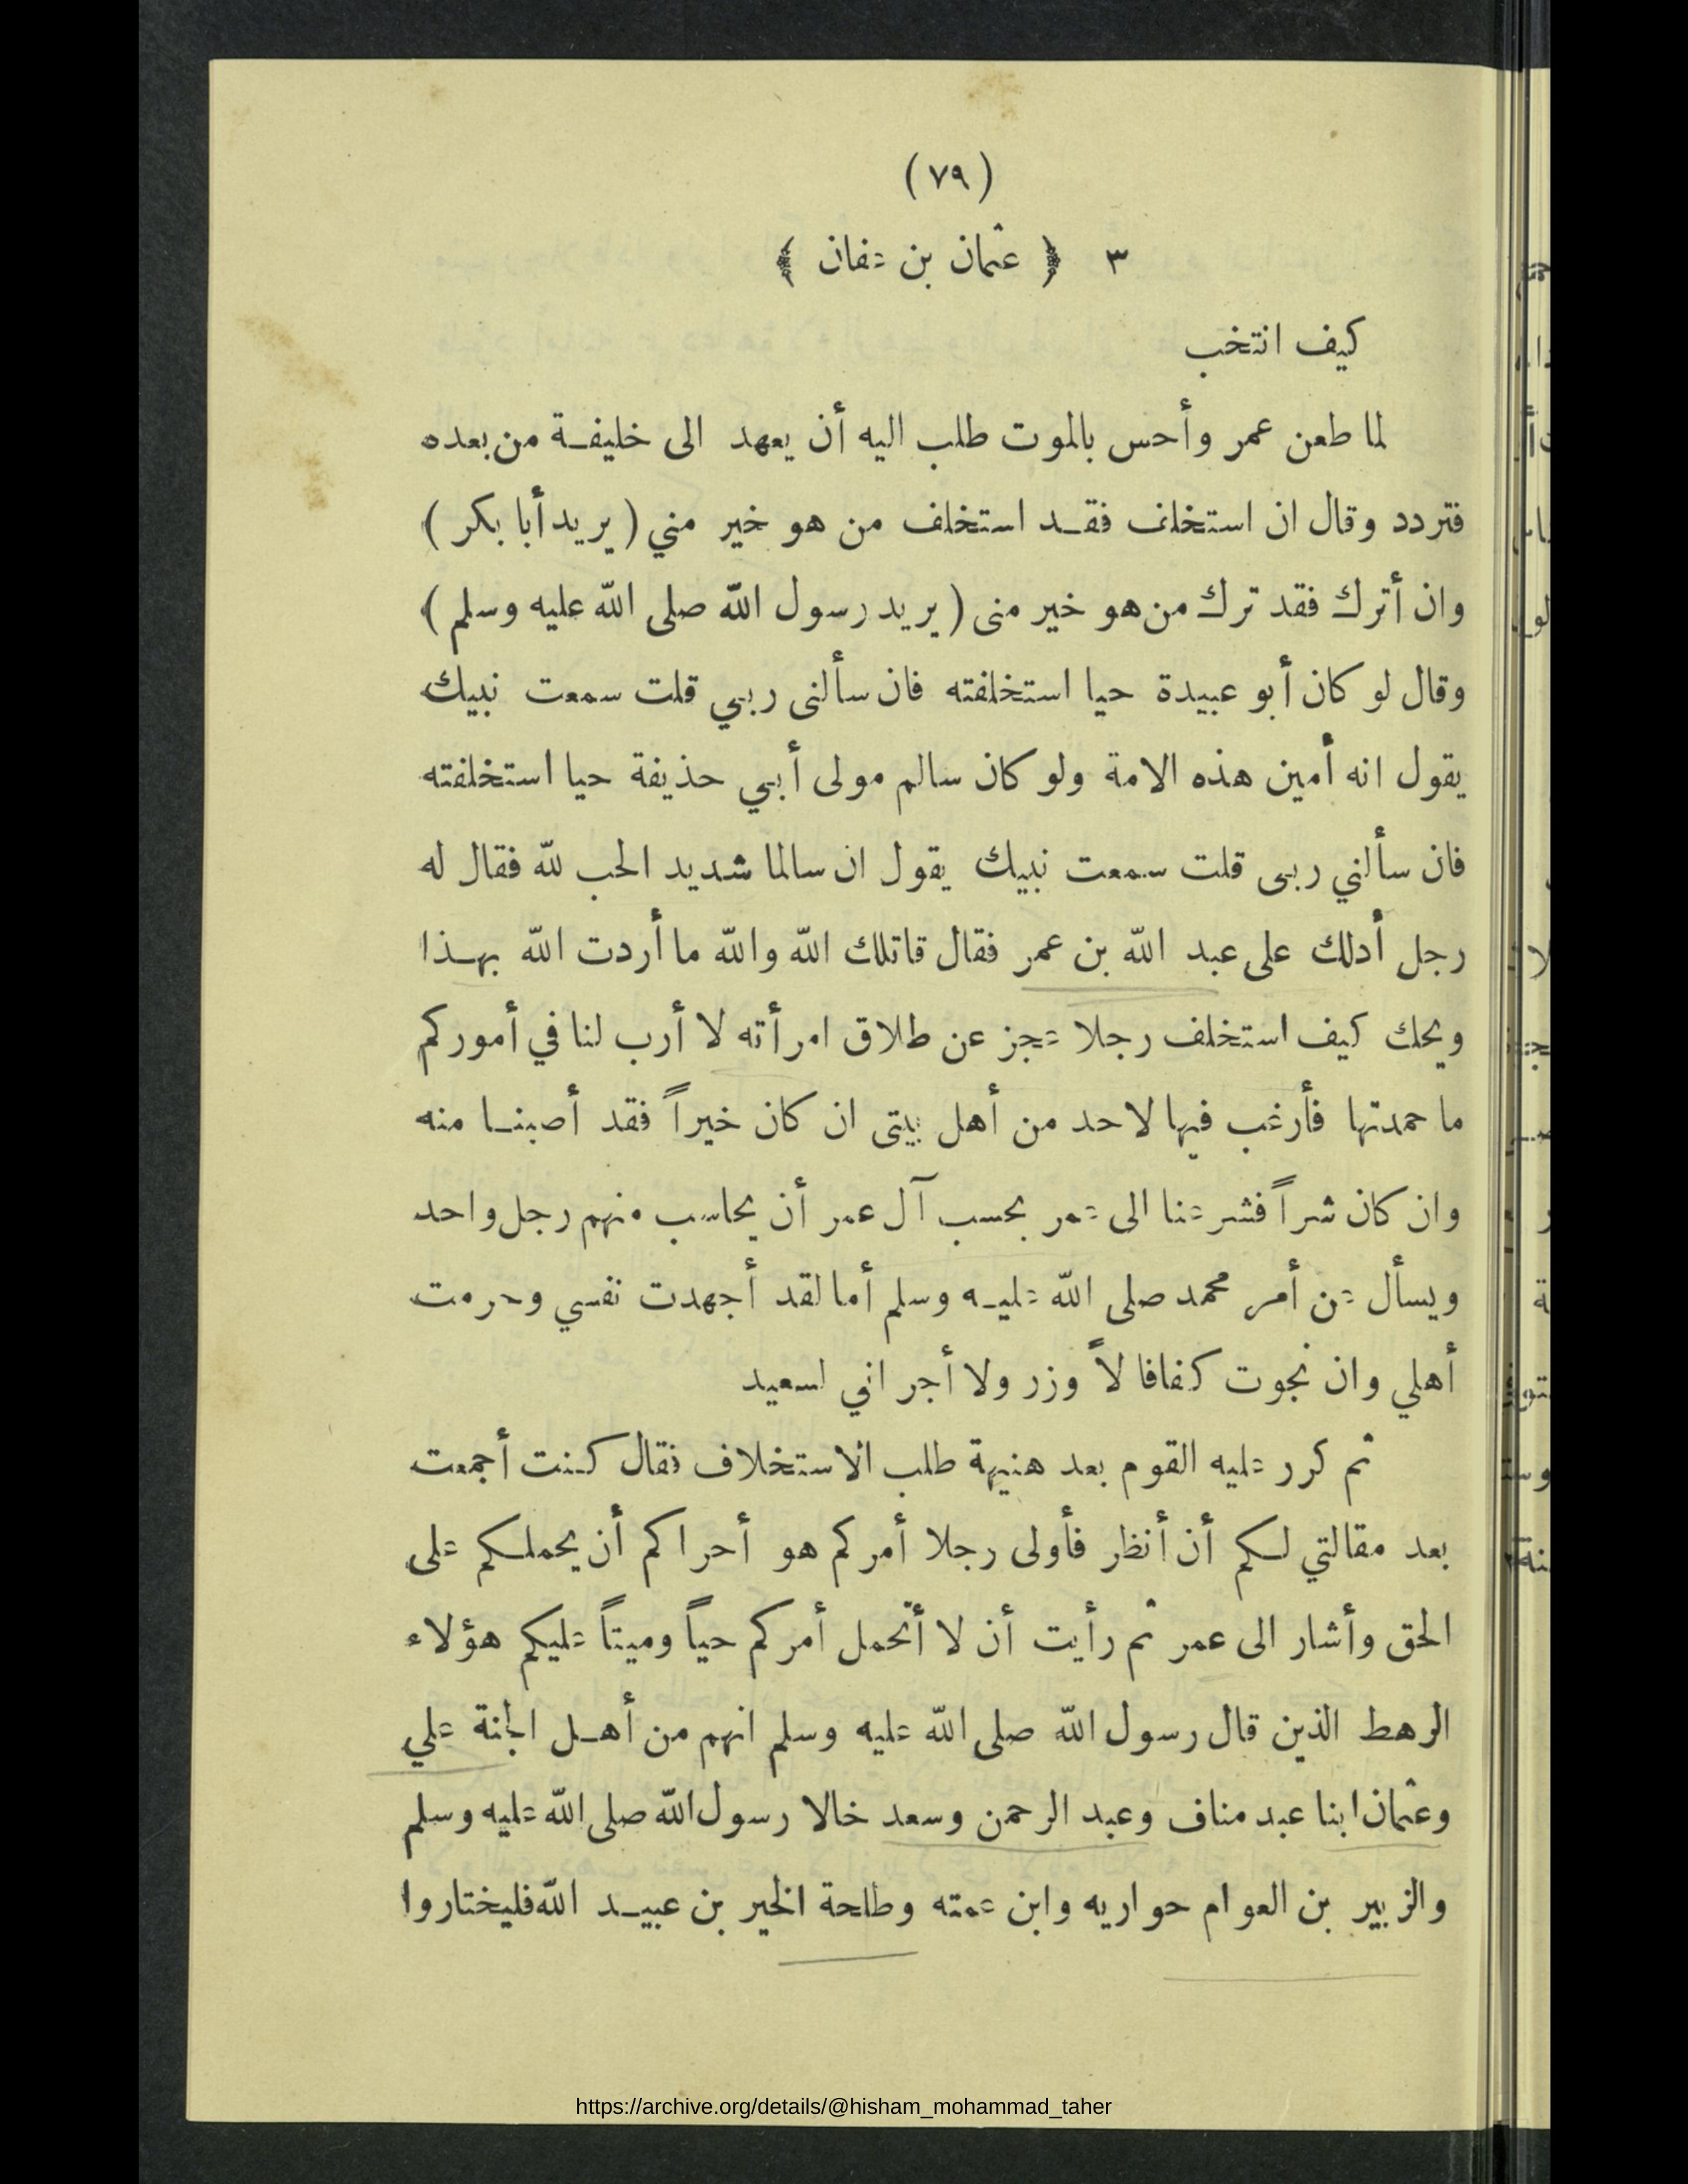 (٧٩)
٣ ﴿ عثمان بن عفان ﴾
كيف انتخب
لما طعن عمر وأحس بالموت طلب اليه أن يعهد الى خليفة من بعده
فتردد وقال ان استخلف فقد استخلف من هو خير مني (يريد أبا بكر)
وان أترك فقد ترك من هو خير منى (يريد رسول الله صلى الله عليه وسلم)
وقال لو كان أبو عبيدة حيا استخلفته فان سألنى ربي قلت سمعت نبيك
يقول انه أمين هذه الامة ولو كان سالم مولى أبي حذيفة حيا استخلفته
فان سألني ربى قلت سمعت نبيك يقول ان سالما شديد الحب لله فقال له
رجل أدلك على عبد الله بن عمر فقال قاتلك الله والله ما أردت الله بهذا
ويحك كيف استخلف رجلا عجز عن طلاق امرأته لا أرب لنا في أموركم
ما حمدتها فأرغب فيها لاحد من أهل بيتى ان كان خيراً فقد أصبنا منه
وان كان شراً فشر عنا الى عمر بحسب آل عمر أن يحاسب منهم رجل واحد
ويسأل عن أمر محمد صلى الله عليه وسلم أما لقد أجهدت نفسي وحرمت
أهلي وان نجوت كفافا لاً وزر ولا أجر اني لسعيد
ثم كرر عليه القوم بعد هنيهة طلب الاستخلاف فقال كنت أجمعت
بعد مقالتي لكم أن أنظر فأولى رجلا أمركم هو أحراكم أن يحملكم على
الحق وأشار الى عمر ثم رأيت أن لا أتحمل أمركم حياً وميتاً عليكم هؤلاء
الرهط الذين قال رسول الله صلى الله عليه وسلم انهم من أهل الجنة علي
وعثمان ابنا عبد مناف وعبد الرحمن وسعد خالا رسول الله صلى الله عليه وسلم
والزبير بن العوام حواريه وابن عمته وطلحة الخير بن عبيد الله فليختاروا
https://archive.org/details/@hisham_mohammad_taher